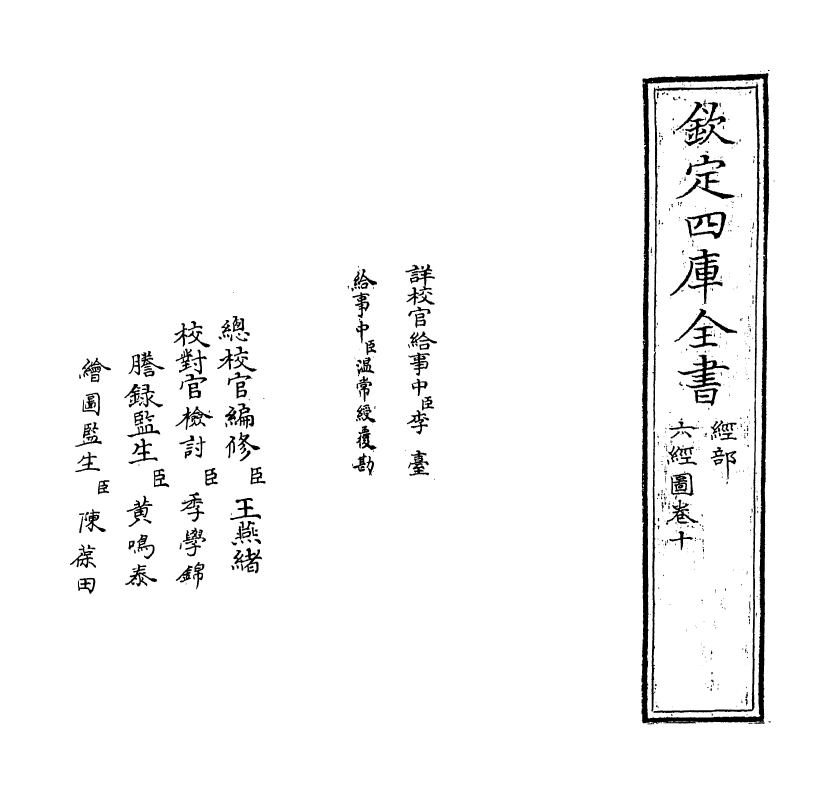 欽定四庫全書
經部
六經圖卷十
詳校官給事中臣李臺
給事中臣温常綬覆勘
總校官編修臣王燕緒
校對官檢討臣季學錦
謄録監生臣黄鳴泰
繪圖監生臣陳葆田